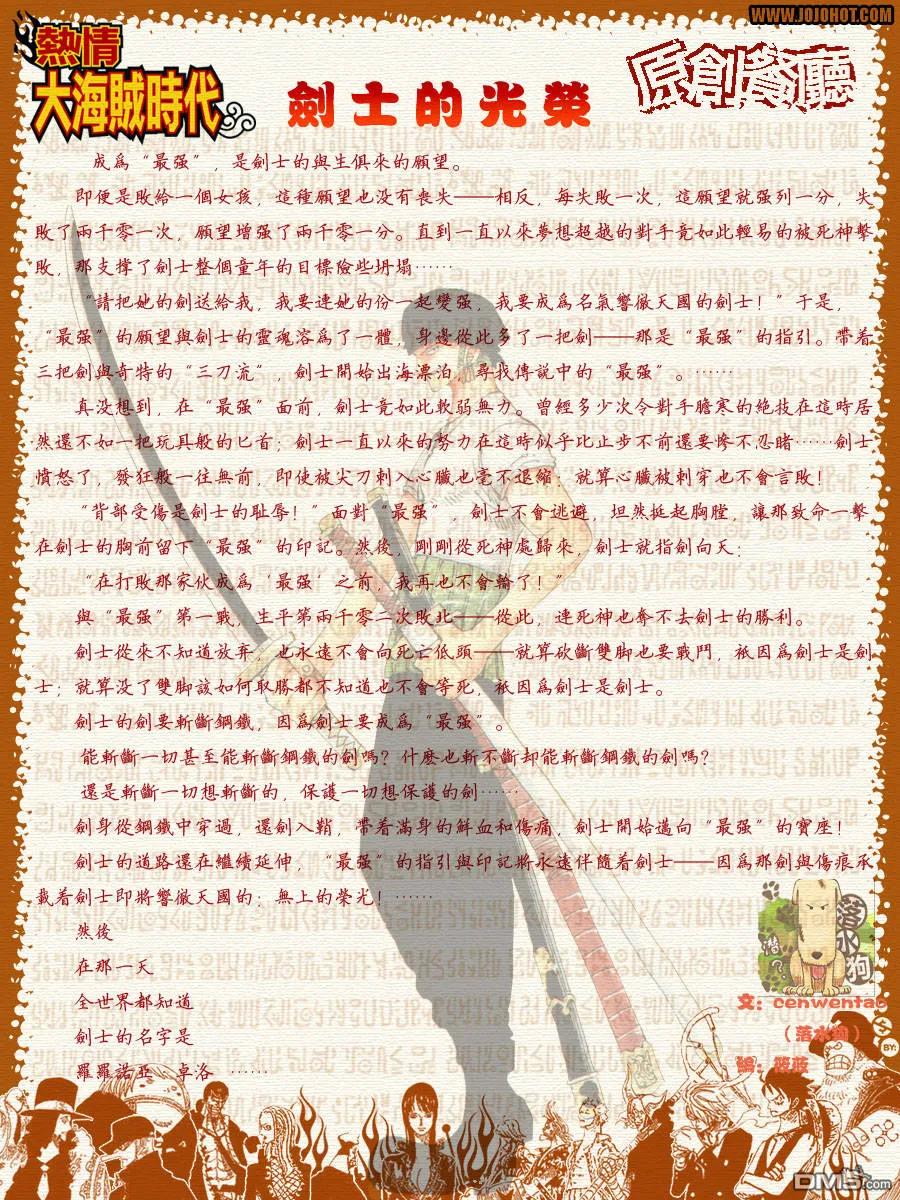 WWW.JOJOHOT.COM
熱情
大海賊時代
劍士的光榮
原創餐廳
成爲“最强”，是劍士的與生俱來的願望。
即便是敗給一個女孩，這種願望也没有喪失——相反，每失敗一次，這願望就强列一分，失
敗了兩千零一次，願望增强了兩千零一分。直到一直以來夢想超越的對手竟如此輕易的被死神擊
敗，那支撑了劍士整個童年的目標險些坍塌……
“請把她的劍送給我，我要連她的份一起變强，我要成爲名氣響徹天國的劍士！”于是，
“最强”的願望與劍士的靈魂溶爲了一體，身邊從此多了一把劍——那是“最强”的指引。帶着
三把劍與奇特的“三刀流”，劍士開始出海漂泊，尋找傳説中的“最强”。……
真没想到，在“最强”面前，劍士竟如此軟弱無力。曾經多少次令對手膽寒的絶技在這時居
然還不如一把玩具般的匕首；劍士一直以來的努力在這時似乎比止步不前還要慘不忍睹……劍士
憤怒了，發狂般一往無前，即使被尖刀刺入心臟也毫不退縮；就算心臟被刺穿也不會言敗！
“背部受傷是劍士的耻辱！”面對“最强”，劍士不會逃避，坦然挺起胸膛，讓那致命一擊
在劍士的胸前留下“最强”的印記。然後，剛剛從死神處歸來，劍士就指劍向天；
“在打敗那家伙成爲‘最强‘之前，我再也不會輸了！”
與“最强”第一戰，生平第兩千零二次敗北——從此，連死神也奪不去劍士的勝利。
劍士從來不知道放弃，也永遠不會向死亡低頭——就算砍斷雙脚也要戰鬥，衹因爲劍士是劍
士；就算没了雙脚該如何取勝都不知道也不會等死，衹因爲劍士是劍士。
劍士的劍要斬斷鋼鐵，因爲劍士要成爲“最强”。
能斬斷一切甚至能斬斷鋼鐵的劍嗎？什麽也斬不斷却能斬斷鋼鐵的劍嗎？
還是斬斷一切想斬斷的，保護一切想保護的劍……
劍身從鋼鐵中穿過，還劍入鞘，帶着滿身的鮮血和傷痛，劍士開始邁向“最强”的寶座！
劍士的道路還在繼續延伸，“最强”的指引與印記將永遠伴隨着劍士——因爲那劍與傷痕承
載着劍士即將響徹天國的；無上的榮光！……
然後
在那一天
全世界都知道
劍士的名字是
羅羅諾亞 卓洛 ……
落水狗
潛？
文：cenwentao
（落水狗）
編：筱薇
BY:
DM5.com